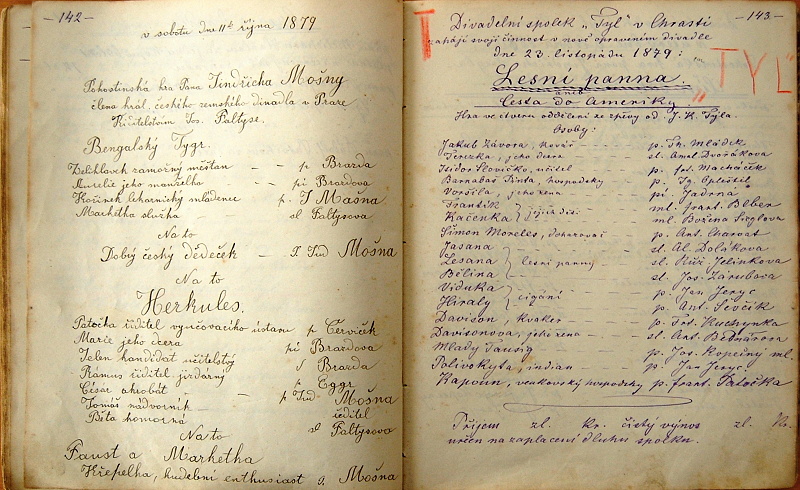 —142—
v sobotu dne 11ho října 1879
Pohostinská hra Pana Jindřicha Mošny
člena král. českého zemského divadla v Praze
Řiditelstvím Jos. Faltyse.
Bengalský Tygr.
zámožný měšťan — p Brazda
Aurelie jeho manželka — pí Brazdova
Kořínek lekárnický mládenec — p. J Mošna
Markétka služka — sl Faltysova
Na to
Dobrý český dědeček — J. Ind Mošna
Na to
Herkules.
Patočka řiditel vyučovacího ústavu p Červíček
Marie jeho dcera pí Brazdova
Jelen kandidat učitelství J Brazda
Rámus řiditel jízdárny p Eggr
César akrobat — p Ind Mošna
Tomáš nádvorník řiditel
Běta komorná sl Faltysova
Na to
Faust a Markétka
Křepelka, hudební enthusiast J. Mošna
—143—
T
Divadelní spolek „Tyl" v Chrasti
zahájí svoji činnost v nově opraveném divadle
dne 23. listopadu 1879:
„TYL"
Lesní panna.
aneb
Cesta do Ameriky
Hra ve čtvero oddělení ze zpěvy od J. K. Tyla.
Osoby:
Jakub Závora, kovář — p. Th. Mládek
Terezka, jeho dcera — sl. Amal Dvořákova
Isidor Slovíčko, učitel — p. Jos. Macháček
Barnabáš Pinta, hospodský — p. Ig. Opleštil
Voršila, jeho žena — pí Jadrná
František } jejich děti — ml. frant. Biber
Kačenka — ml. Božena Sieglova
Šimon Moreles, dohazovač — p. Ant. Charvat
Jasana } lesní panny — sl. Al. Dolákova
Lesana — sl. Růž. Jelínkova
Bělina — sl. Jos. Zárubova
Viduka } cigáni — p. Jan Jeryc
Hiraly — p. Ant. Sivčík
Davison, kvaker — p. Fort. Kuchynka
Davisonova, jeho žena — sl. Ant. Bednářova
Mladý Tausig — p. Jos. Kopečný ml.
Polivokyta, indian — p. Jan Jeryc.
Kapoun, venkovský hospodský p. frant. Patočka
Příjem zl. kr. čistý výnos zl. Kr.
určen na zaplacení dluhu spolku.